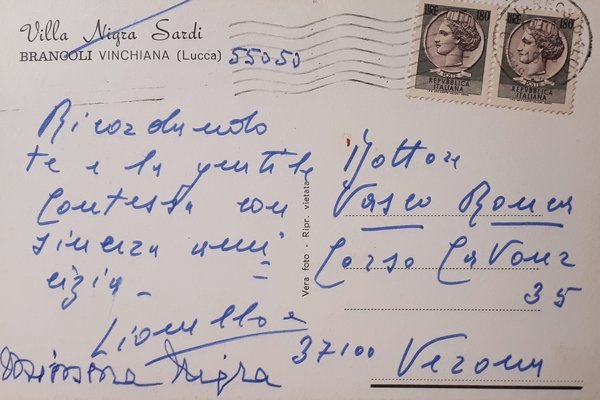 Villa Nigra Sardi
BRANCOLI VINCHIANA (Lucca) 55050
LIRE 180
POSTE
REPVBBLICA
ITALIANA
LIRE 180
POSTE
REPVBBLICA
ITALIANA
Ricordando
te e la gentile
Contessa con
sincera ami
cizia
Lionello e
Nigra
Vera foto - Ripr. vietata
Dottore
Vasco Ronca
Corso Cavour
35
37100 Verona